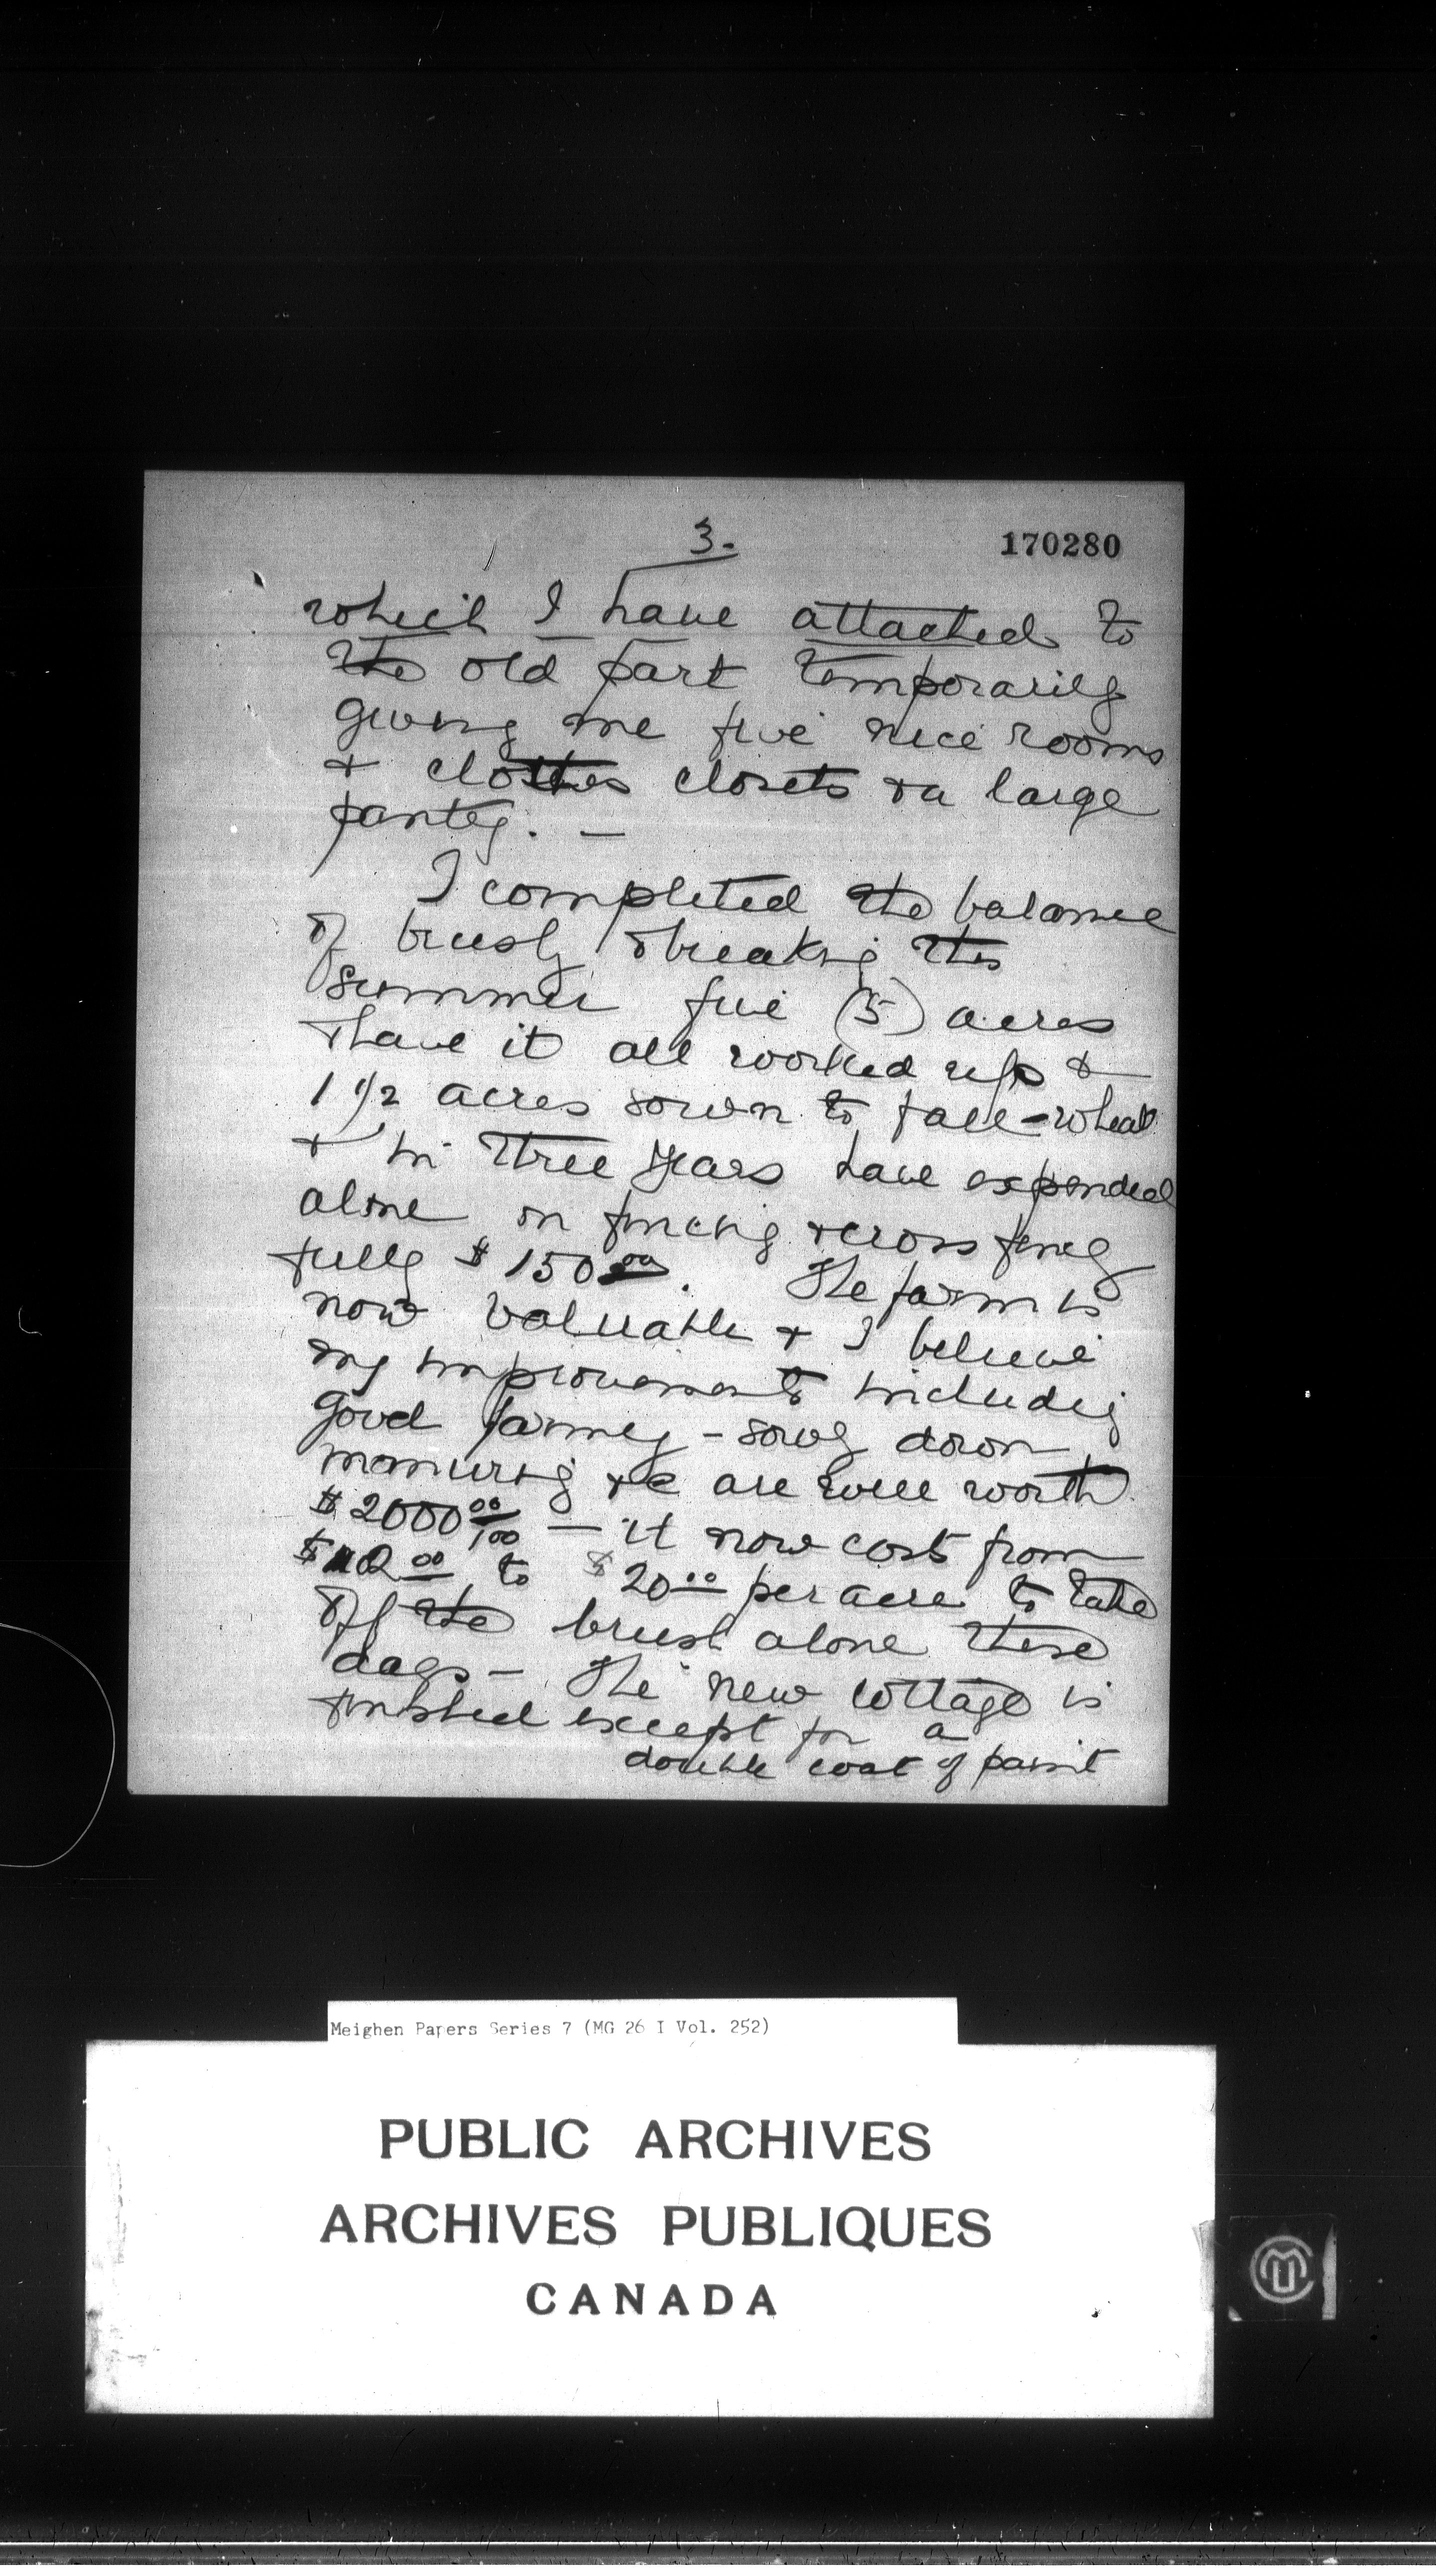 3.
170280
which I have attached to
the old part temporarily
giving me five nice rooms
+ clothes closets + a large
pantry. —
I completed the balance
of brush breaking this
summer five (5) acres
+ have it all worked up +
1 1/2 acres sown to fall-wheat
+ in three years have expended
alone in fencing + cross fencg
fully $150.00. The farm is
now valuable + I believe
my improvements including
good farming - sowg down
manuring +c are well worth
$2000 00/100 — it now costs from
00 to $20.00 per acre to take
off the brush alone these
days — The new cottage is
finished except for a
double coat of paint
Meighen Papers Series 7 (MG 26 I Vol. 252)
PUBLIC ARCHIVES
ARCHIVES PUBLIQUES
CANADA